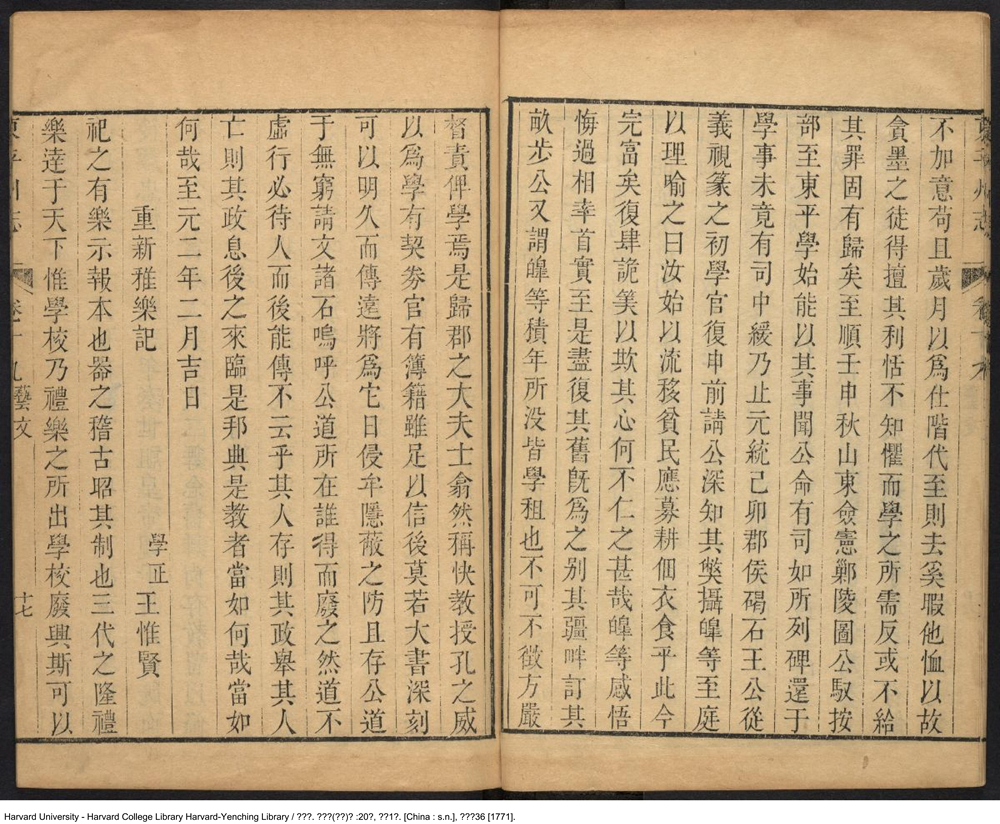 不加意苟且歲月以爲仕階代至則去奚暇他恤以故
貪墨之徒得擅其利恬不知懼而學之所需反或不給
其罪固有歸矣至順壬申秋山東僉憲鄭陵圖公馭按
部至東平學始能以其事聞公命有司如所列碑還于
學事未竟有司中緩乃止元統己卯郡侯碣石王公從
義視篆之初學官復申前請公深知其獘攝皥等至庭
以理喻之曰汝始以流移貧民應募耕佃衣食乎此今
完富矣復肆詭筭以欺其心何不仁之甚哉皥等感悟
悔過相率首實至是盡復其舊旣爲之别其疆畔訂其
畝步公又謂皥等積年所没皆學租也不可不徵方嚴
督責俾學焉是歸郡之大夫士翕然稱快教授孔之威
以爲學有契劵官有簿籍雖足以信後莫若大書深刻
可以明久而傳遠將爲它日侵牟隱蔽之防且存公道
于無窮請文諸石嗚呼公道所在誰得而廢之然道不
虛行必待人而後能傳不云乎其人存則其政舉其人
亡則其政息後之來臨是邦典是教者當如何哉當如
何哉至元二年二月吉日
重新雅樂記
學正 王惟賢
祀之有樂示報本也器之稽古昭其制也三代之隆禮
樂達于天下惟學校乃禮樂之所出學校廢興斯可以
東平州志 卷十九 藝文 十七
Harvard University - Harvard College Library Harvard-Yenching Library / ???. ???(??)? :20?, ??1?. [China : s.n.], ???36 [1771].